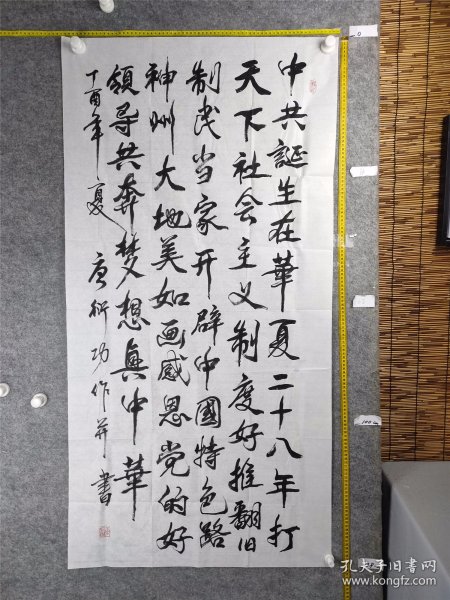 中共誕生在華夏二十八年打
天下社会主义制度好推翻旧
制民当家开辟中國特色路
神州大地美如画感恩党的好
領导共奔梦想興中華
丁酉年夏唐衍功作并書
孔夫子旧书网
www.kongfz.com